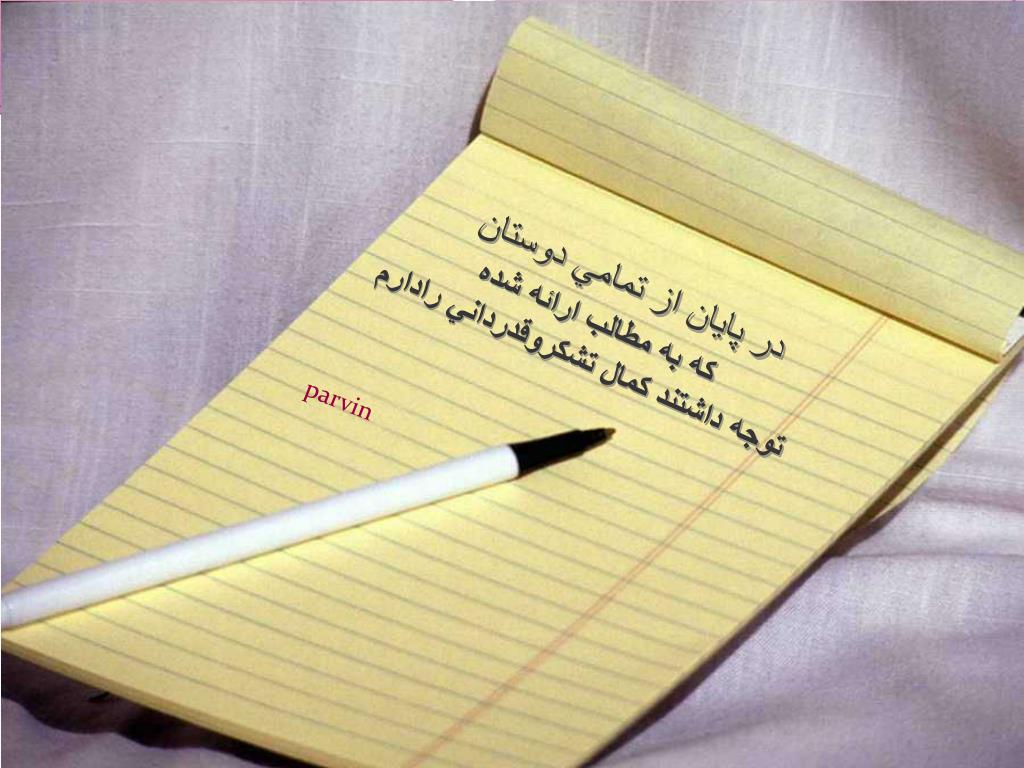 در پايان از تمامي دوستان
كه به مطالب ارائه شده
توجه داشتند كمال تشكروقدرداني رادارم
parvin